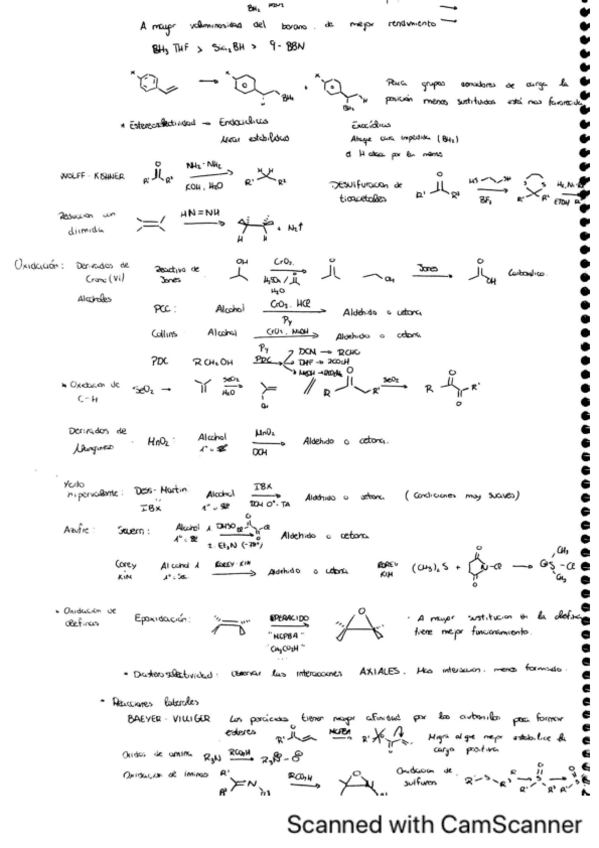 A mayor voluminosidad del borano, de mejor rendimiento →
BH3 THF > Sia2BH > 9-BBN
Para grupos donadores de carga la
posición menos sustituida está mas favorecida
* Estereoselectividad → Endocíclicas Exocíclicas
Ataque cara impedida (BH3)
WOLFF-KISHNER NH2-NH2 KOH, H2O
DESULFURACIÓN de tioacetales BF3
Reducción con diimida HN=NH + N2↑
Oxidación: Derivados de Cromo (VI) Reactivo de Jones CrO3 H2O Jones OH Carboxílico
Alcoholes
PCC: Alcohol CrO3, HCl Py Aldehído o cetona
Collins Alcohol Aldehído o cetona
PDC RCH2OH Py PDC DCM → RCHO
DMF → RCO2H
* Oxidación de C-H SeO2 → SeO2 H2O SeO2 R R'
Derivados de Manganeso MnO2: Alcohol MnO2 DCM Aldehído o cetona.
Yodo hipervalente: Dess-Martin IBX Alcohol IBX Aldehído o cetona (Condiciones muy suaves)
Azufre: Swern: Alcohol 1. DMSO 2. Et3N (-78°) Aldehído o cetona
Corey Kim Alcohol COREY-KIM Aldehído o cetona COREY KIM (CH3)2S + N-Cl → S-Cl CH3 CH3
* Oxidación de olefinas Epoxidación: PERACIDO "MCPBA" "CH3CO3H"
· A mayor sustitución en la olefina
tiene mejor funcionamiento.
* Diastereoselectividad: observar las interacciones AXIALES. Mas interaccion, menos formado.
* Reacciones laterales
BAEYER-VILLIGER Los perácidos tienen mayor afinidad por los carbonilos para formar
esteres MCPBA Migra el que mejor estabilice la
carga positiva
Oxidos de amina R3N RCO3H
Oxidacion de iminas RCO3H Oxidacion de sulfuros
Scanned with CamScanner